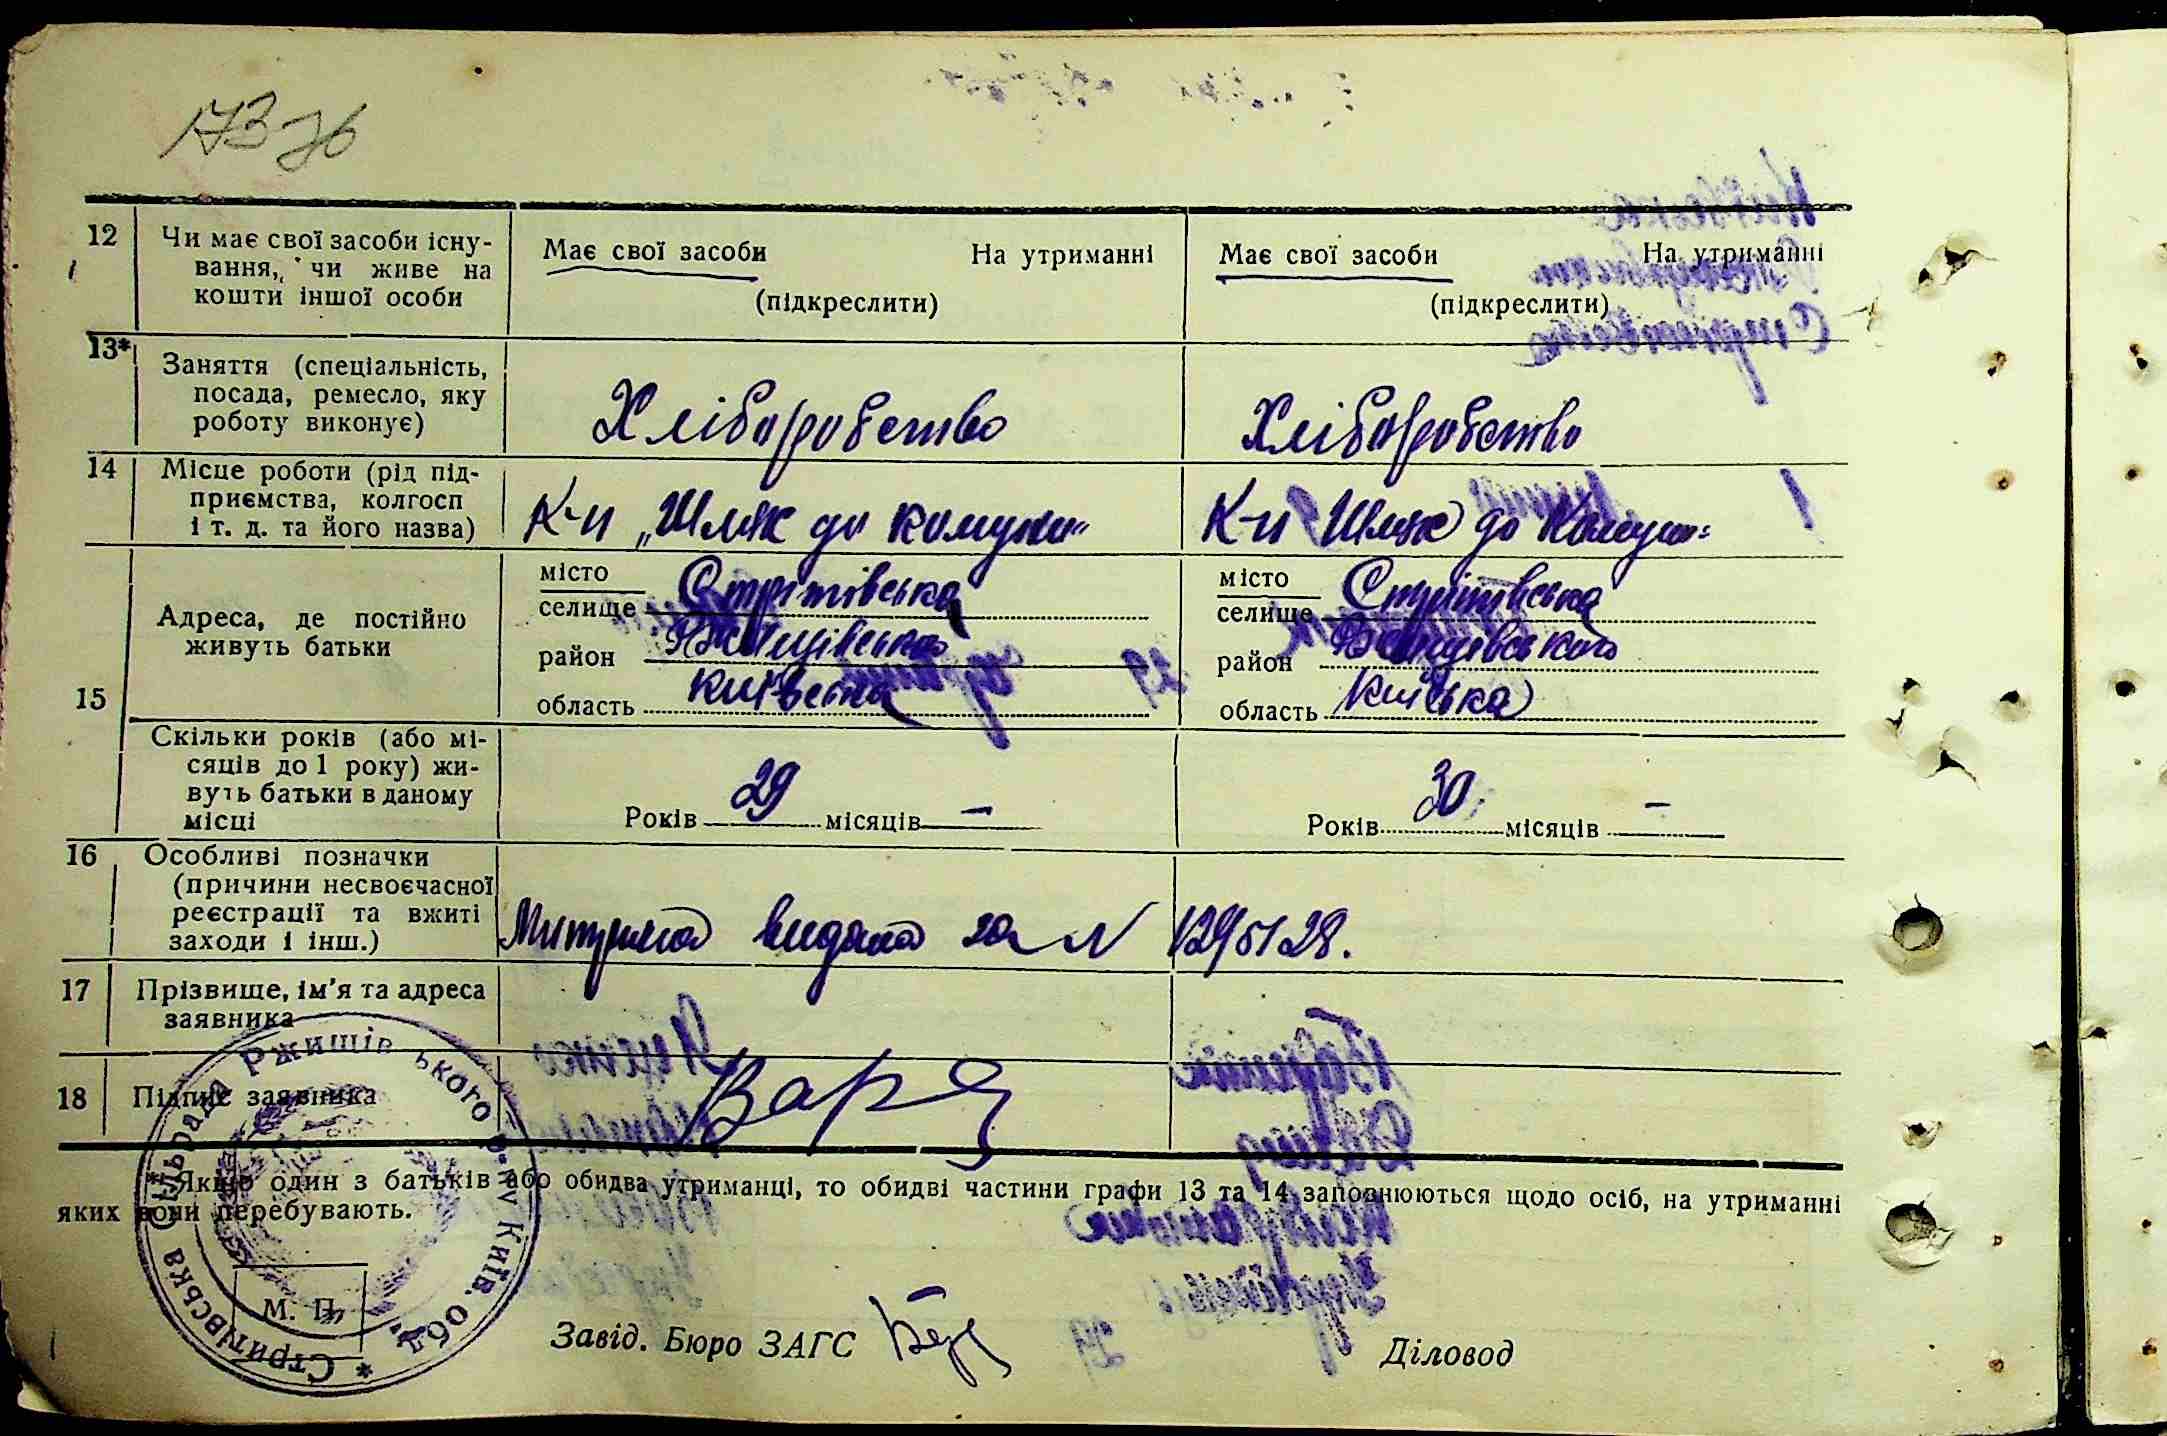 173 зв
12 Чи має свої засоби існу-
вання, чи живе на
кошти іншої особи
Має свої засоби На утриманні
(підкреслити)
Має свої засоби На утриманні
(підкреслити)
13* Заняття (спеціальність,
посада, ремесло, яку
роботу виконує)
Хліборобство
Хліборобство
14 Місце роботи (рід під-
приємства, колгосп
і т. д. та його назва)
К-п „Шлях до комуни"
К-п Шлях до Комуни
15 Адреса, де постійно
живуть батьки
місто
селище Стритівська
район Ржищівського
область Київська
місто
селище Стритівська
район Ржищівського
область Київська
Скільки років (або мі-
сяців до 1 року) жи-
вуть батьки в даному
місці
Років 29 місяців —
Років 30 місяців —
16 Особливі позначки
(причини несвоєчасної
реєстрації та вжиті
заходи і інш.)
видана за N
17 Прізвище, ім'я та адреса
заявника
18 Підпис заявника
* Якщо один з батьків або обидва утриманці, то обидві частини графи 13 та 14 заповнюються щодо осіб, на утриманні
яких вони перебувають.
* Стритівська Сільрада Ржищівського р-ну Київ. обл.
М. П.
Завід. Бюро ЗАГС
Діловод